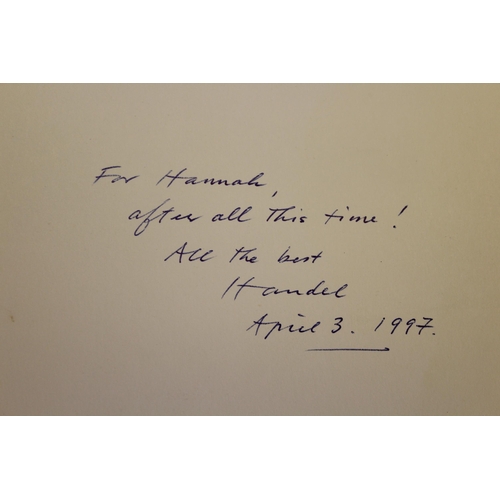 For Hannah,
after all this time!
All the best
Handel
April 3. 1997.